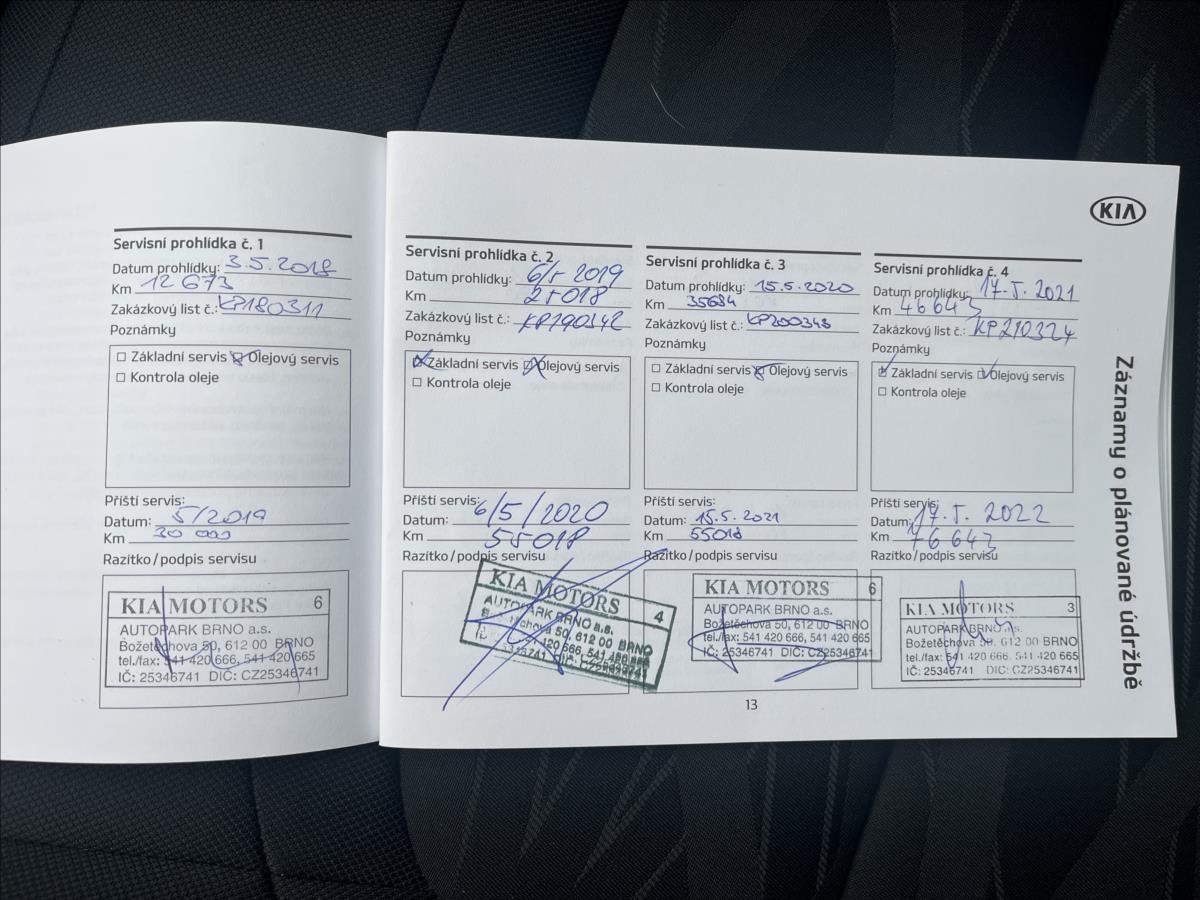 KIA
Záznamy o plánované údržbě
Servisní prohlídka č. 1
Datum prohlídky: 3.5.2018
Km 12 673
Zakázkový list č.: KP180311
Poznámky
Základní servis Olejový servis
Kontrola oleje
Příští servis:
Datum: 5/2019
Km 30 000
Razítko/podpis servisu
KIA MOTORS 6
AUTOPARK BRNO a.s.
Božetěchova 50, 612 00 BRNO
tel./fax: 541 420 666, 541 420 665
IČ: 25346741 DIČ: CZ25346741
Servisní prohlídka č. 2
Datum prohlídky: 6/5 2019
Km 25018
Zakázkový list č.: KP190342
Poznámky
Základní servis Olejový servis
Kontrola oleje
Příští servis:
Datum: 6/5/2020
Km 55018
Razítko/podpis servisu
KIA MOTORS 4
AUTOPARK BRNO a.s.
50, 612 00 BRNO
541 420 666, 541 420
CZ25346741
Servisní prohlídka č. 3
Datum prohlídky: 15.5.2020
Km 35684
Zakázkový list č.: KP200348
Poznámky
Základní servis Olejový servis
Kontrola oleje
Příští servis:
Datum: 15.5.2021
Km 55018
Razítko/podpis servisu
KIA MOTORS 6
AUTOPARK BRNO a.s.
Božetěchova 50, 612 00 BRNO
tel./fax: 541 420 666, 541 420 665
IČ: 25346741 DIČ: CZ25346741
Servisní prohlídka č. 4
Datum prohlídky: 17.5.2021
Km 46643
Zakázkový list č.: KP210324
Poznámky
Základní servis Olejový servis
Kontrola oleje
Příští servis:
Datum: 17.5. 2022
Km 76643
Razítko/podpis servisu
KIA MOTORS 3
AUTOPARK BRNO a.s.
Božetěchova 50, 612 00 BRNO
tel./fax: 541 420 666, 541 420 665
IČ: 25346741 DIČ: CZ25346741
13